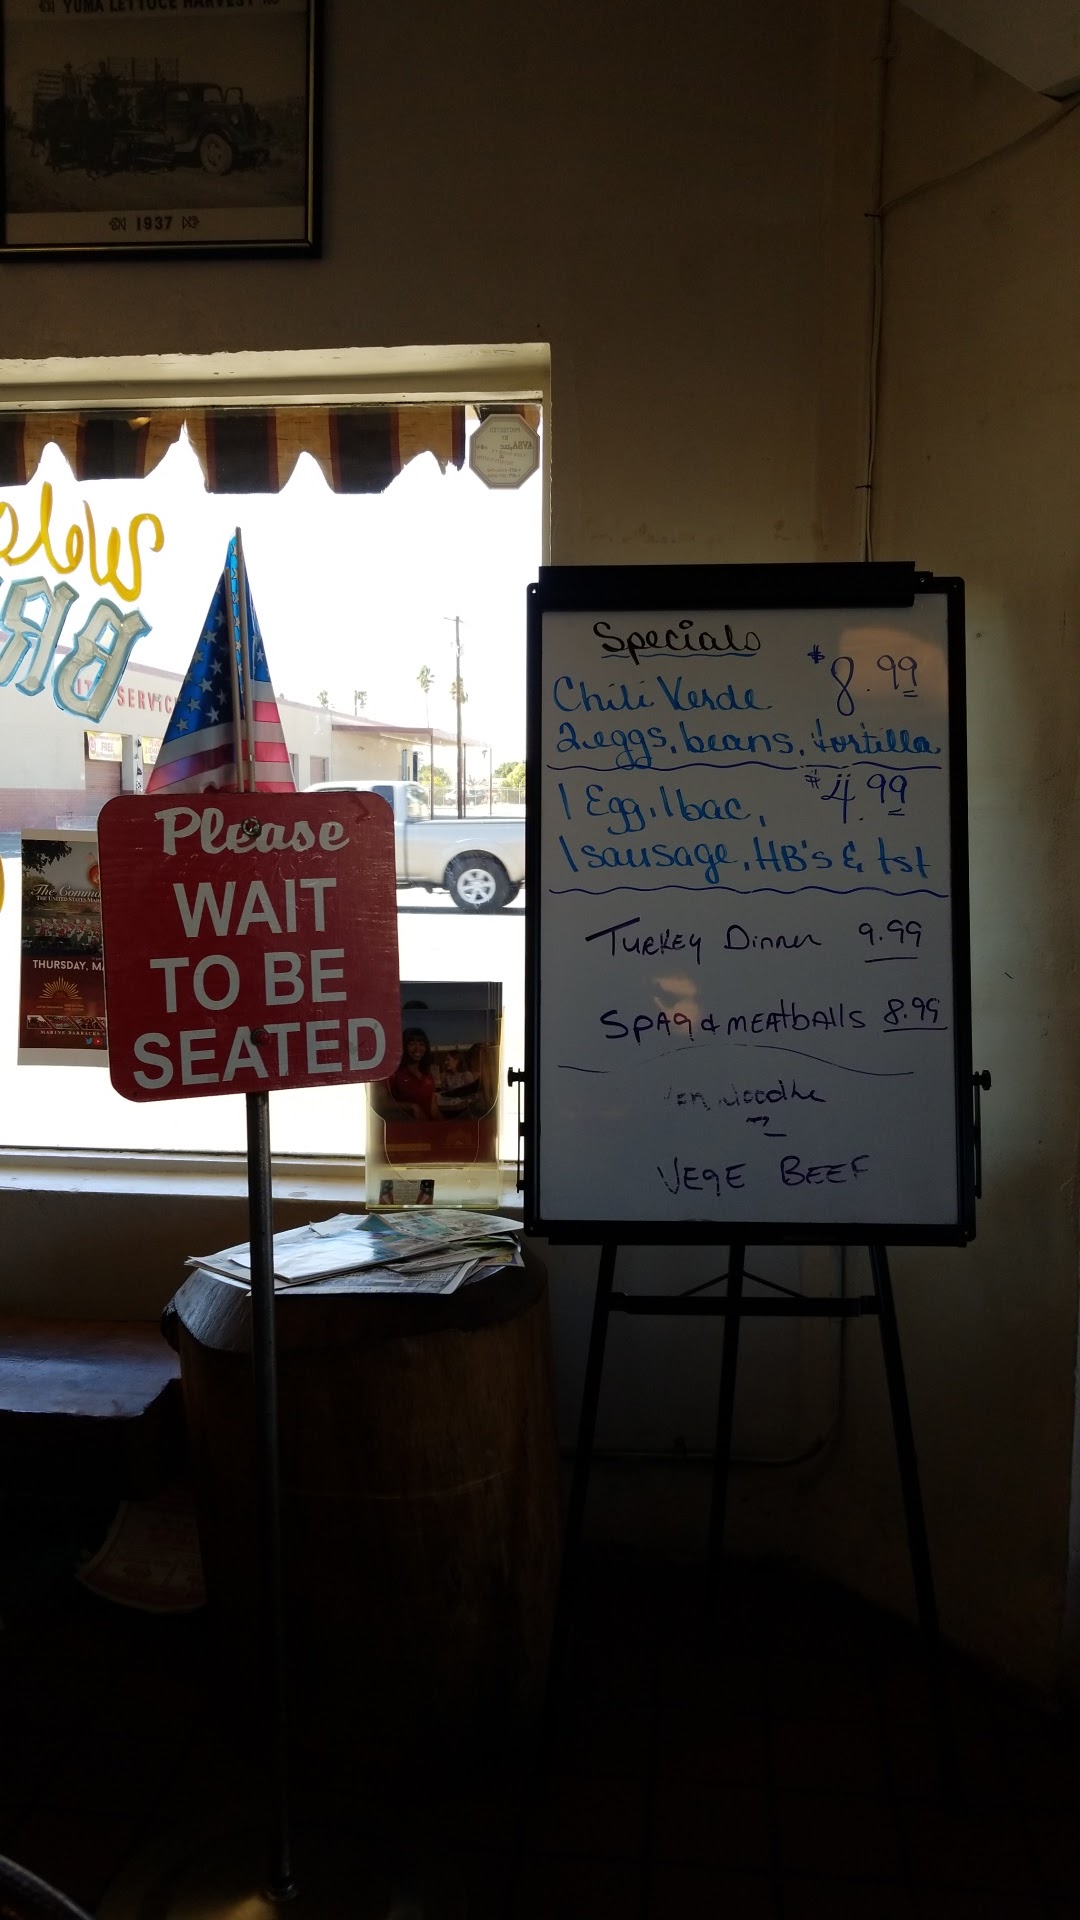 YUMA LETTUCE HARVEST
1937
PROTECTED
BY
Welc
BR
SERVIC
FREE
Please
WAIT
TO BE
SEATED
The Comma
THE UNITED STATES MAR
THURSDAY, MA
MARINE BARRACKS
Specials
Chili Verde $8.99
2 eggs, beans, tortilla
1 Egg, 1 bac, $4.99
1 sausage, HB's & tst
TURKEY Dinner 9.99
SPAG & MEATBALLS 8.99
Noodle
VEGE BEEF